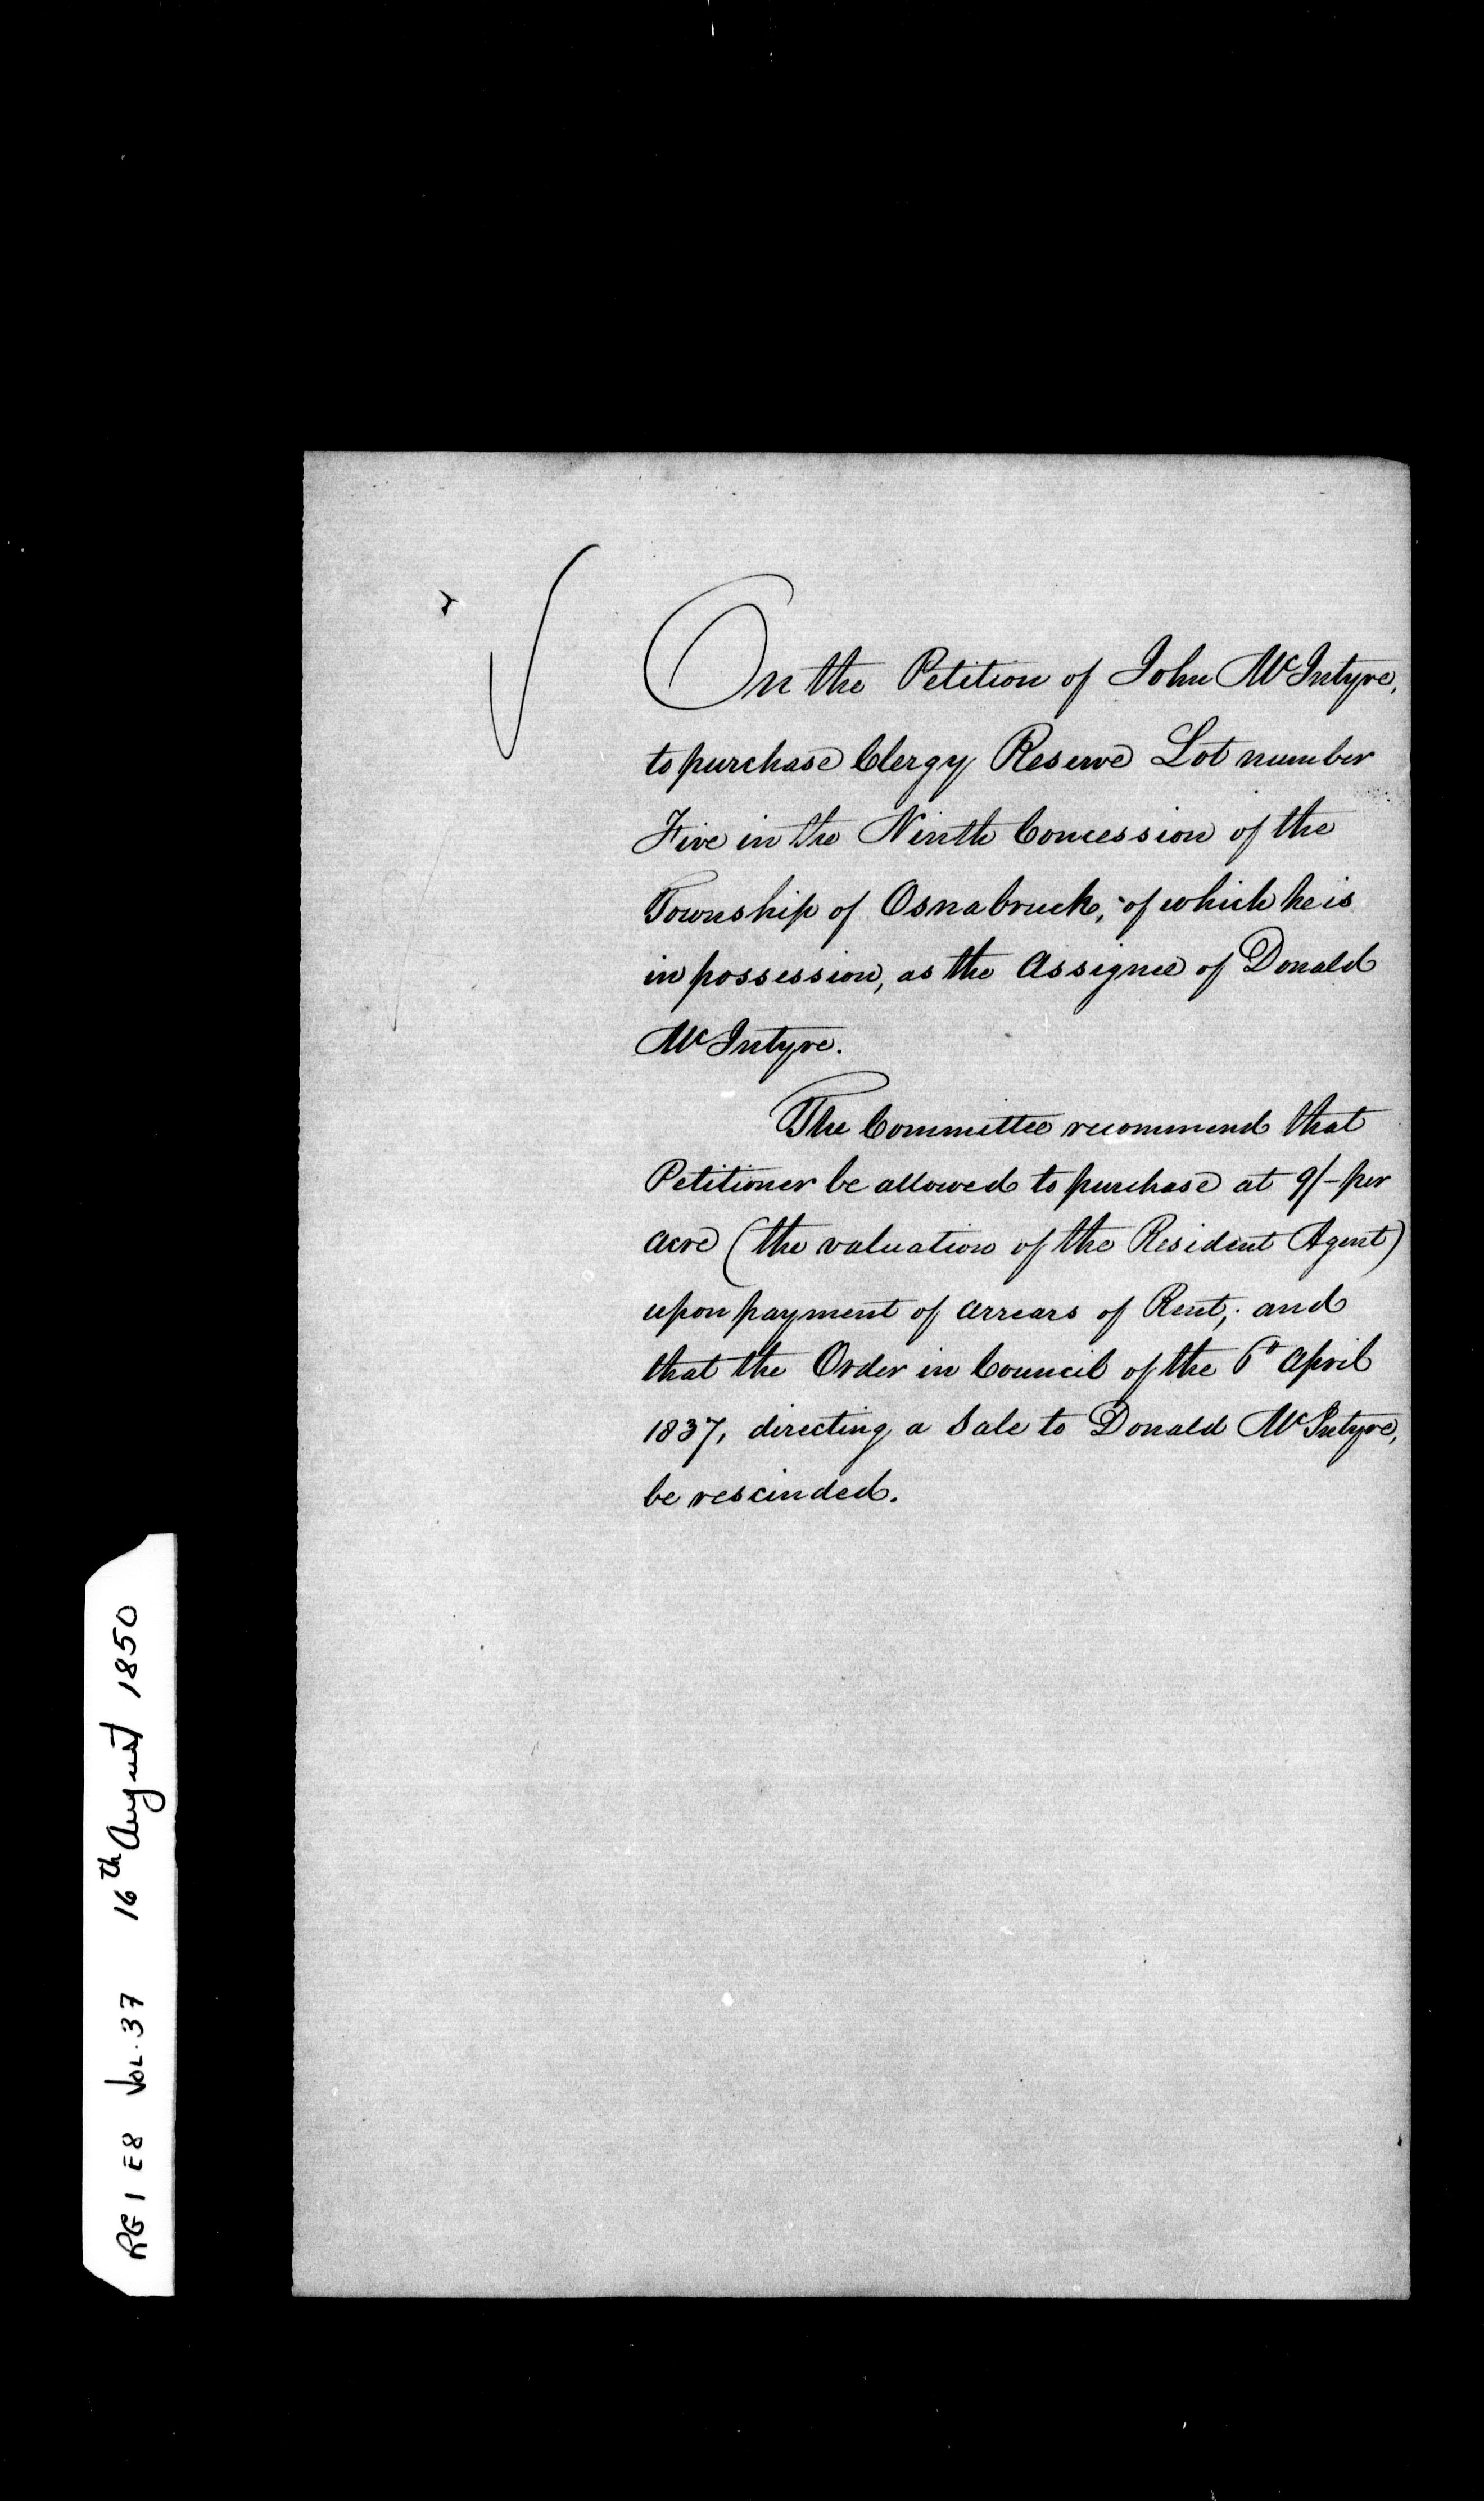 On the Petition of John McIntyre,
to purchase Clergy Reserve Lot number
Five in the Ninth Concession of the
Township of Osnabruck, of which he is
in possession, as the Assignee of Donald
McIntyre.
The Committee recommend that
Petitioner be allowed to purchase at 9/- per
acre (the valuation of the Resident Agent)
upon payment of arrears of Rent; and
that the Order in Council of the 6th April
1837, directing a Sale to Donald McIntyre,
be rescinded.
RG 1 E8 VOL. 37 16th August 1850